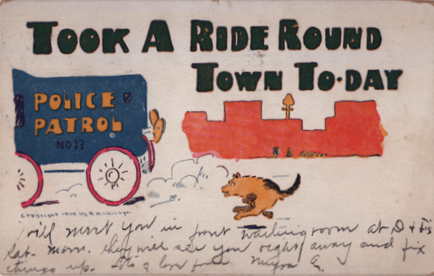 TOOK A RIDE ROUND
TOWN TO-DAY
POLICE
PATROL
NO 23
will meet you in front waiting room at D &
Sat. morn. they will see you right away and fix
things up. love from